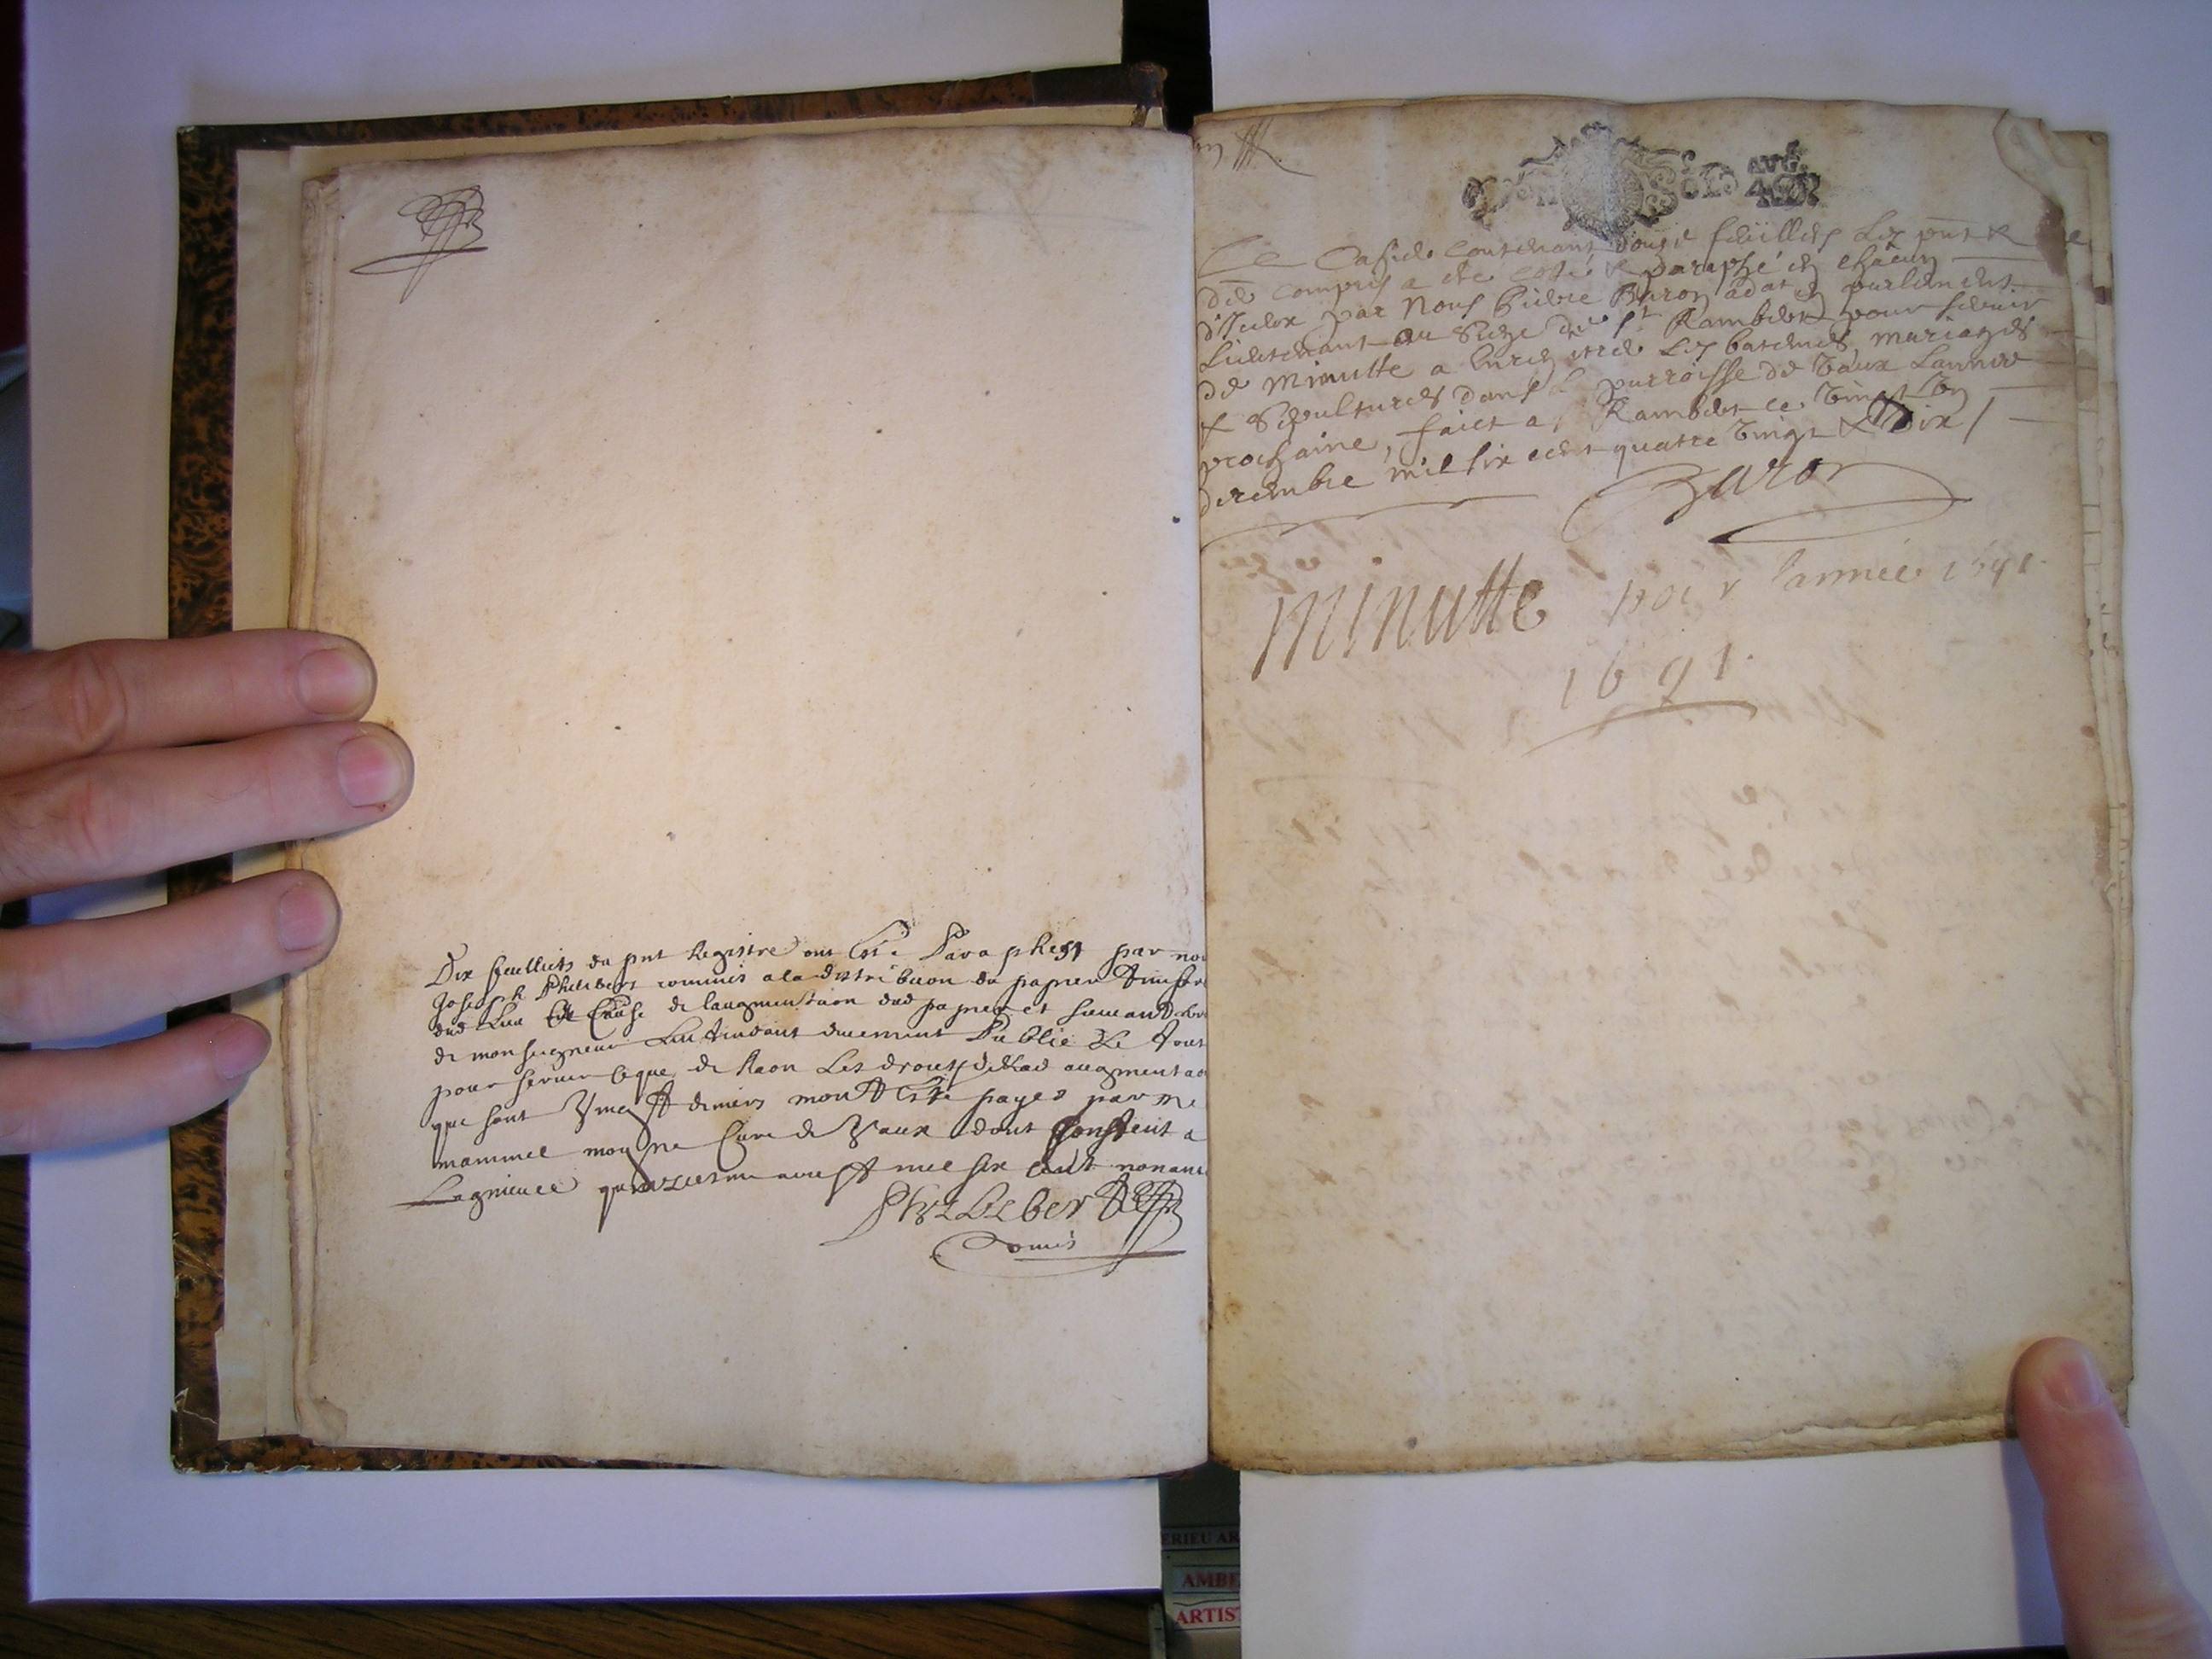 Dix feulliets du pnt Registre ont Esté Paraphes par nou
Joseph Philibert commis a la distribuon du papier timbré
dud Lieu Et Cause de laugmentaon dud papier et suivant
de monseigneur Lintendant duement Publié Le tout
pour servir que de Raon Les droits de lad augmentaon
que sont Vingt deniers mont Esté payes par me
mammel curé de Vaux dont
Lagnieu ce aoust mil six cent nonante
Philibert
Comis
SOL AVG.
Ce Cahier Contenant douze feuilles Les pnt &
der compris a été coté & paraphé en chacun
d'Iceux par Nous Pierre Baron advat en parlement
Lieutenant au Siege de St Rambert pour servir
de Minutte a Enregistrer Les batemes mariages
& Sepultures dans la parroisse de Vaux Lannée
prochaine, faict a St Rambert ce Vingt un
decembre mil six cent quatre Vingt & Dix /
Baron
Minutte pour lannée 1691.
1691.
ERIEU
AMBE
ARTIS